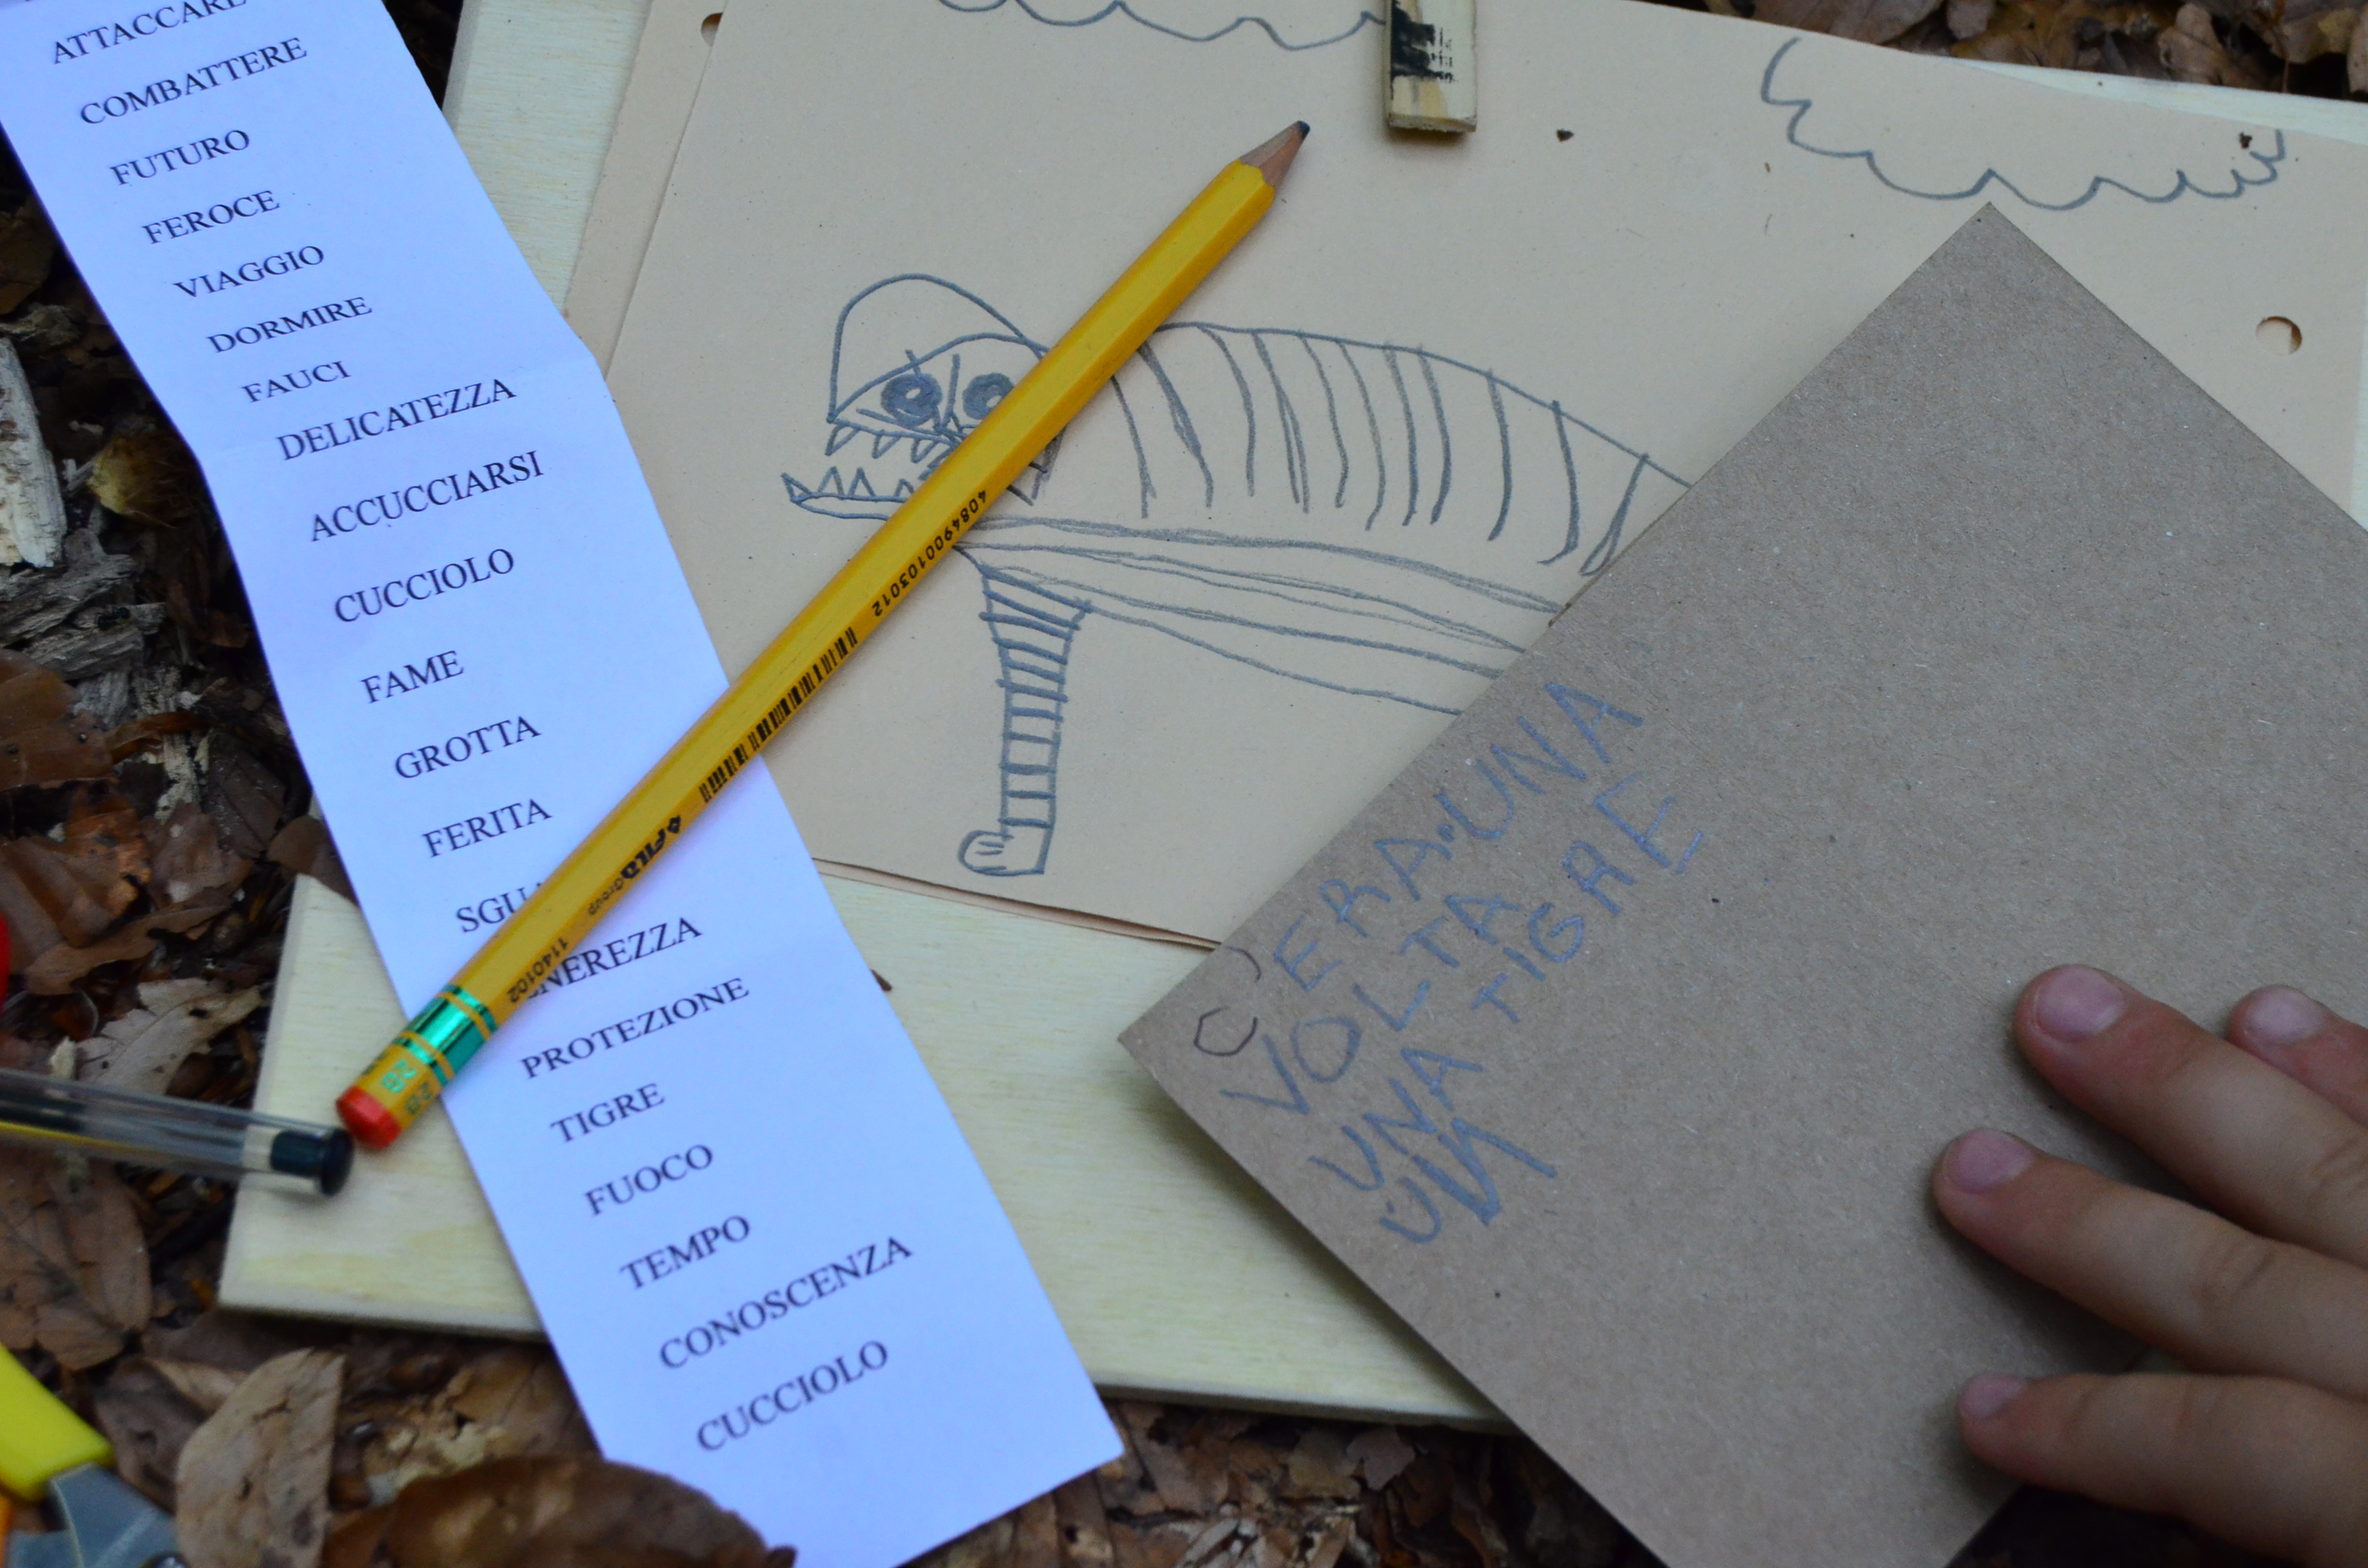 ATTACCARE
COMBATTERE
FUTURO
FEROCE
VIAGGIO
DORMIRE
FAUCI
DELICATEZZA
ACCUCCIARSI
CUCCIOLO
FAME
GROTTA
FERITA
SGU
NEREZZA
PROTEZIONE
TIGRE
FUOCO
TEMPO
CONOSCENZA
CUCCIOLO
4084900103012
FILA Group
1140102
2B
C'ERA UNA
VOLTA
UNA TIGRE